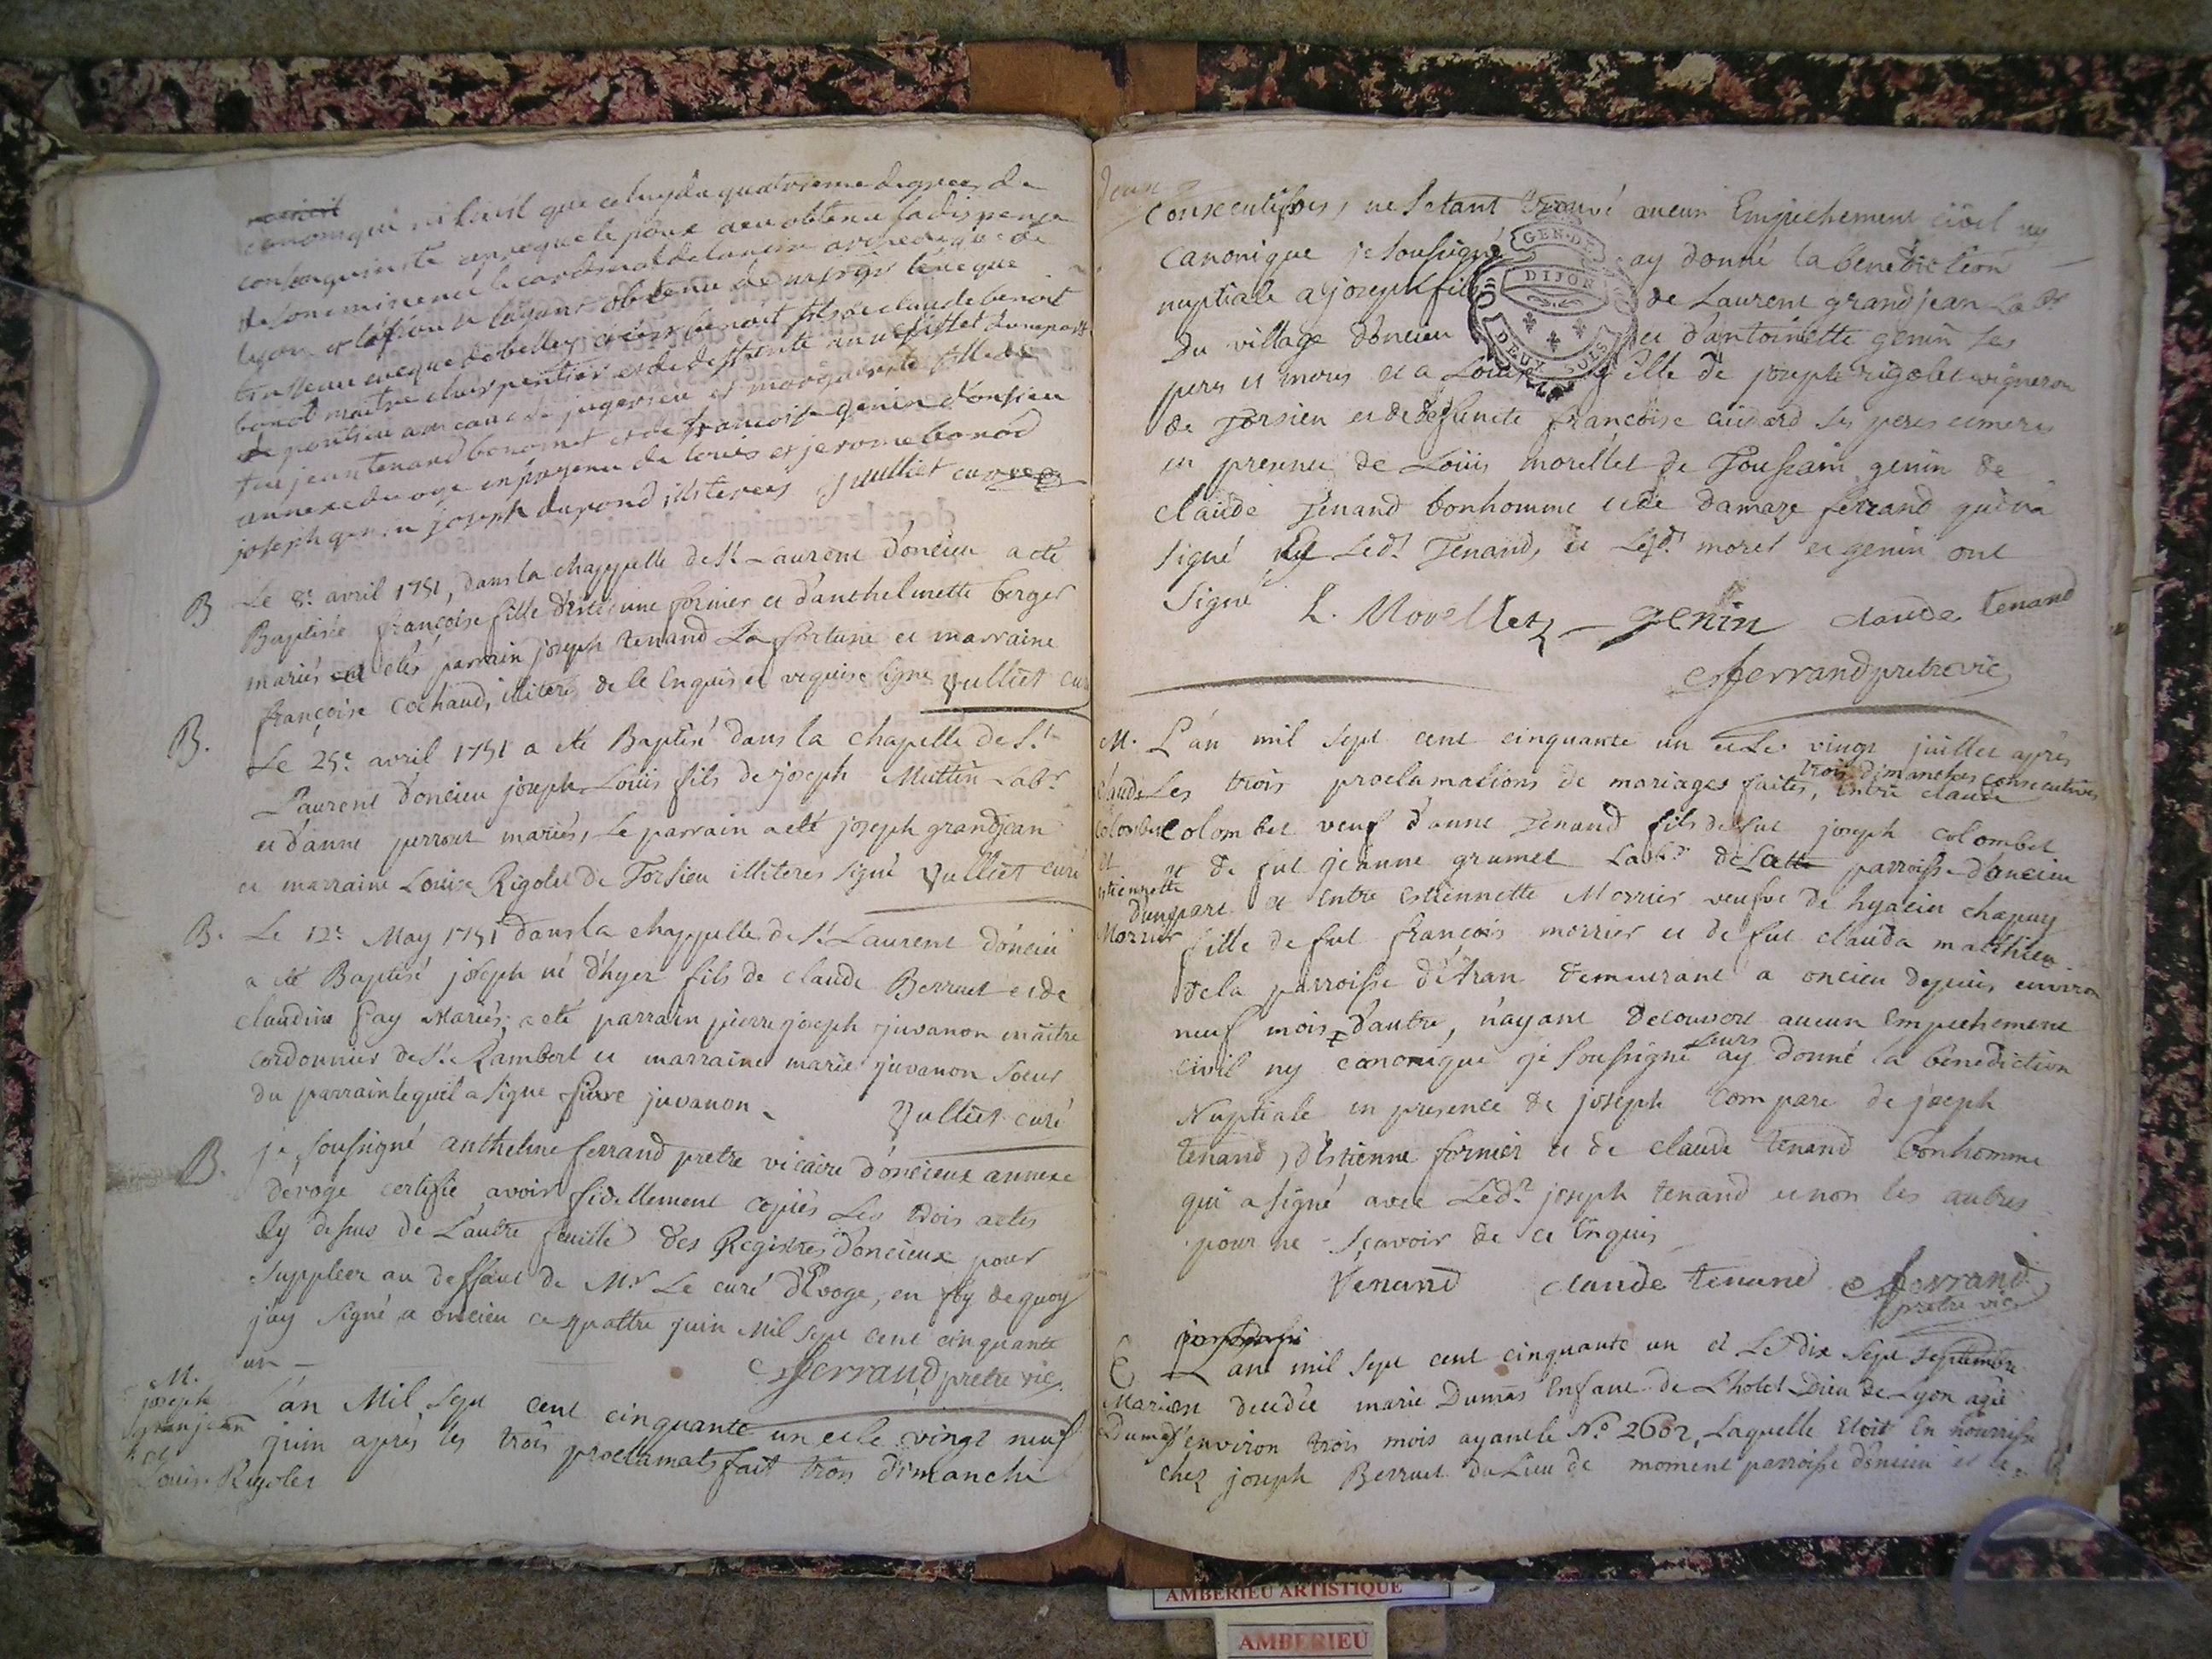 canonique que celuy du quatrieme degrees de
consanguinité du quel le époux a eu obtenu la dispense
de son eminence le cardinal de archeveque de
lyon et obtenu de l'eveque
eveque de belley benoit fils de claude benoit
benoit maitre charpentier et de deffunte d'une part
de jujurieu et marguerite fille de
feu jean tenand bonomet et de francoise genin d'onsieu
annexe d'evoge en presence de louis et jerome bonod
joseph genin joseph dupond illiteres Jullliet curé
B Le 8e avril 1751, dans la chappelle de St Laurent d'oncieu a eté
Baptisée françoise fille d'estienne fornier et d'anthelmette berger
mariés a eté parrain joseph tenand La fortune et marraine
françoise Cochaud, illiteres de ce enquis et requis signe Julliet curé
B. Le 25e avril 1751 a eté Baptisé dans la chapelle de St
Laurent d'oncieu joseph Louis fils de joseph Muttin Labr
et d'anne perrout mariés, Le parrain a eté joseph grandjean
et marraine Louise Rigolet de Torsieu illiteres signé Julliet curé
B. Le 12e May 1751 dans la chappelle de St Laurent d'oncieu
a eté Baptisé joseph né d'hyer fils de claude Berruet et de
claudine fay Mariés, a eté parrain pierre joseph juvanon maitre
cordonnier de St Rambert et marraine marie juvanon soeur
du parrain lequel a signe pierre juvanon Julliet curé
B. je soussigné anthelme ferrand pretre vicaire d'oncieux annexe
d'evoge certifie avoir fidellement copiés Les trois actes
cy dessus de L'autre feuille des Registres d'oncieux pour
suppleer au deffaut de Mr Le curé d'Evoge, en foy de quoy
j'ay signé a oncieu ce quattre juin Mil sept cent cinquante
un - ferrand pretre vic
M.
joseph
granjean
et
Louise Rigolet
L'an Mil sept cent cinquante un et le vingt neuf
juin après les trois proclamats fait trois dimanche
consecutifves, ne s'etant trouvé aucun Empechement civil ny
canonique je soussigné ay donné la benediction
nuptiale a joseph fils de Laurent grandjean Labr
Du village d'oncieu et d'antoinette genin ses
pere et mere et a Louise fille de joseph rigolet vigneron
de Torsieu et de deffuncte françoise cudard ses peres et meres
en presence de Loüis morellet de Toussain genin de
claude Tenand bonhomme et de damaze ferrand qui n'a
signé Ledt Tenand, et Lesdt morel et genin ont
signé L. Morelletz genin claude tenand
ferrand pretre vic
GEN. DE
DIJON
DEUX SOLS
M.
claude
Colombet
et
Etiennette
Morrier
L'an mil sept cent cinquante un et Le vingt juillet après
Les trois proclamations de mariages faites, trois dimanches consecutives entre claude
Colombet veuf d'anne Tenand fils de fut joseph colombet
et de fut jeanne grumet Labr de cette parroisse d'oncieu
d'une part et Entre estiennette Morrier veufve de hyacin chapuy
fille de fut francois morrier et de fut clauda matthieu
de la parroisse d'Aran demeurant a oncieu depuis environ
neuf mois d'autre, n'ayant decouvert aucun Empechement
civil ny canonique je soussigné leurs ay donné la benediction
Nuptiale en presence de joseph Compare de joseph
tenand, d'Estienne fornier et de claude tenand bonhomme
qui a signé avec Ledt joseph tenand et non les autres
pour ne sçavoir de ce Enquis
Tenand claude tenand ferrand
pretre vic
Marie
Dumas
L'ant mil sept cent cinquante un et Le dix sept septembre
est decedée marie Dumas Enfant de L'hotel Dieu de Lyon agée
d'environ trois mois ayant le No 2602, Laquelle etoit En nourrisse
chez joseph Berruet du Lieu de moment parroisse d'oncieu et
AMBERIEU ARTISTIQUE
AMBERIEU